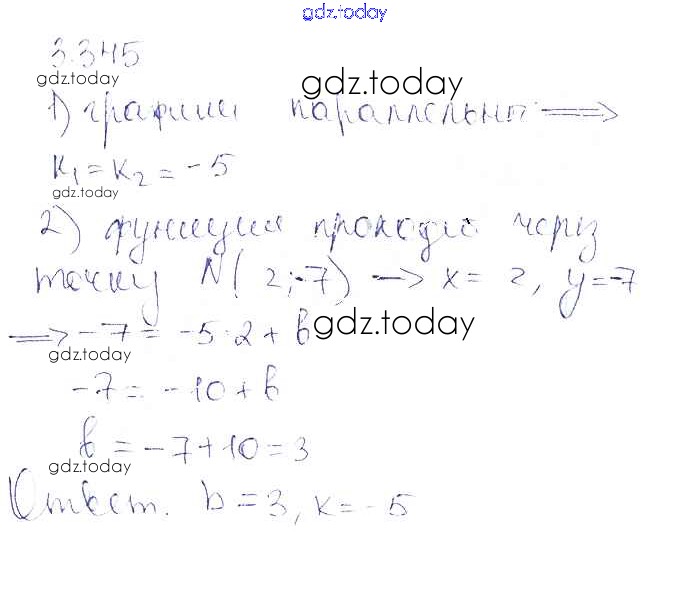 gdz.today
3.345
gdz.today
1) графики параллельны ⟹
gdz.today
k₁ = k₂ = -5
gdz.today
2) функция проходит через
точку N( 2;-7) → x = 2, y=-7
⟹ -7 = -5·2 + b
gdz.today
gdz.today
-7 = -10 + b
b = -7 + 10 = 3
gdz.today
Ответ. b = 3, k = -5